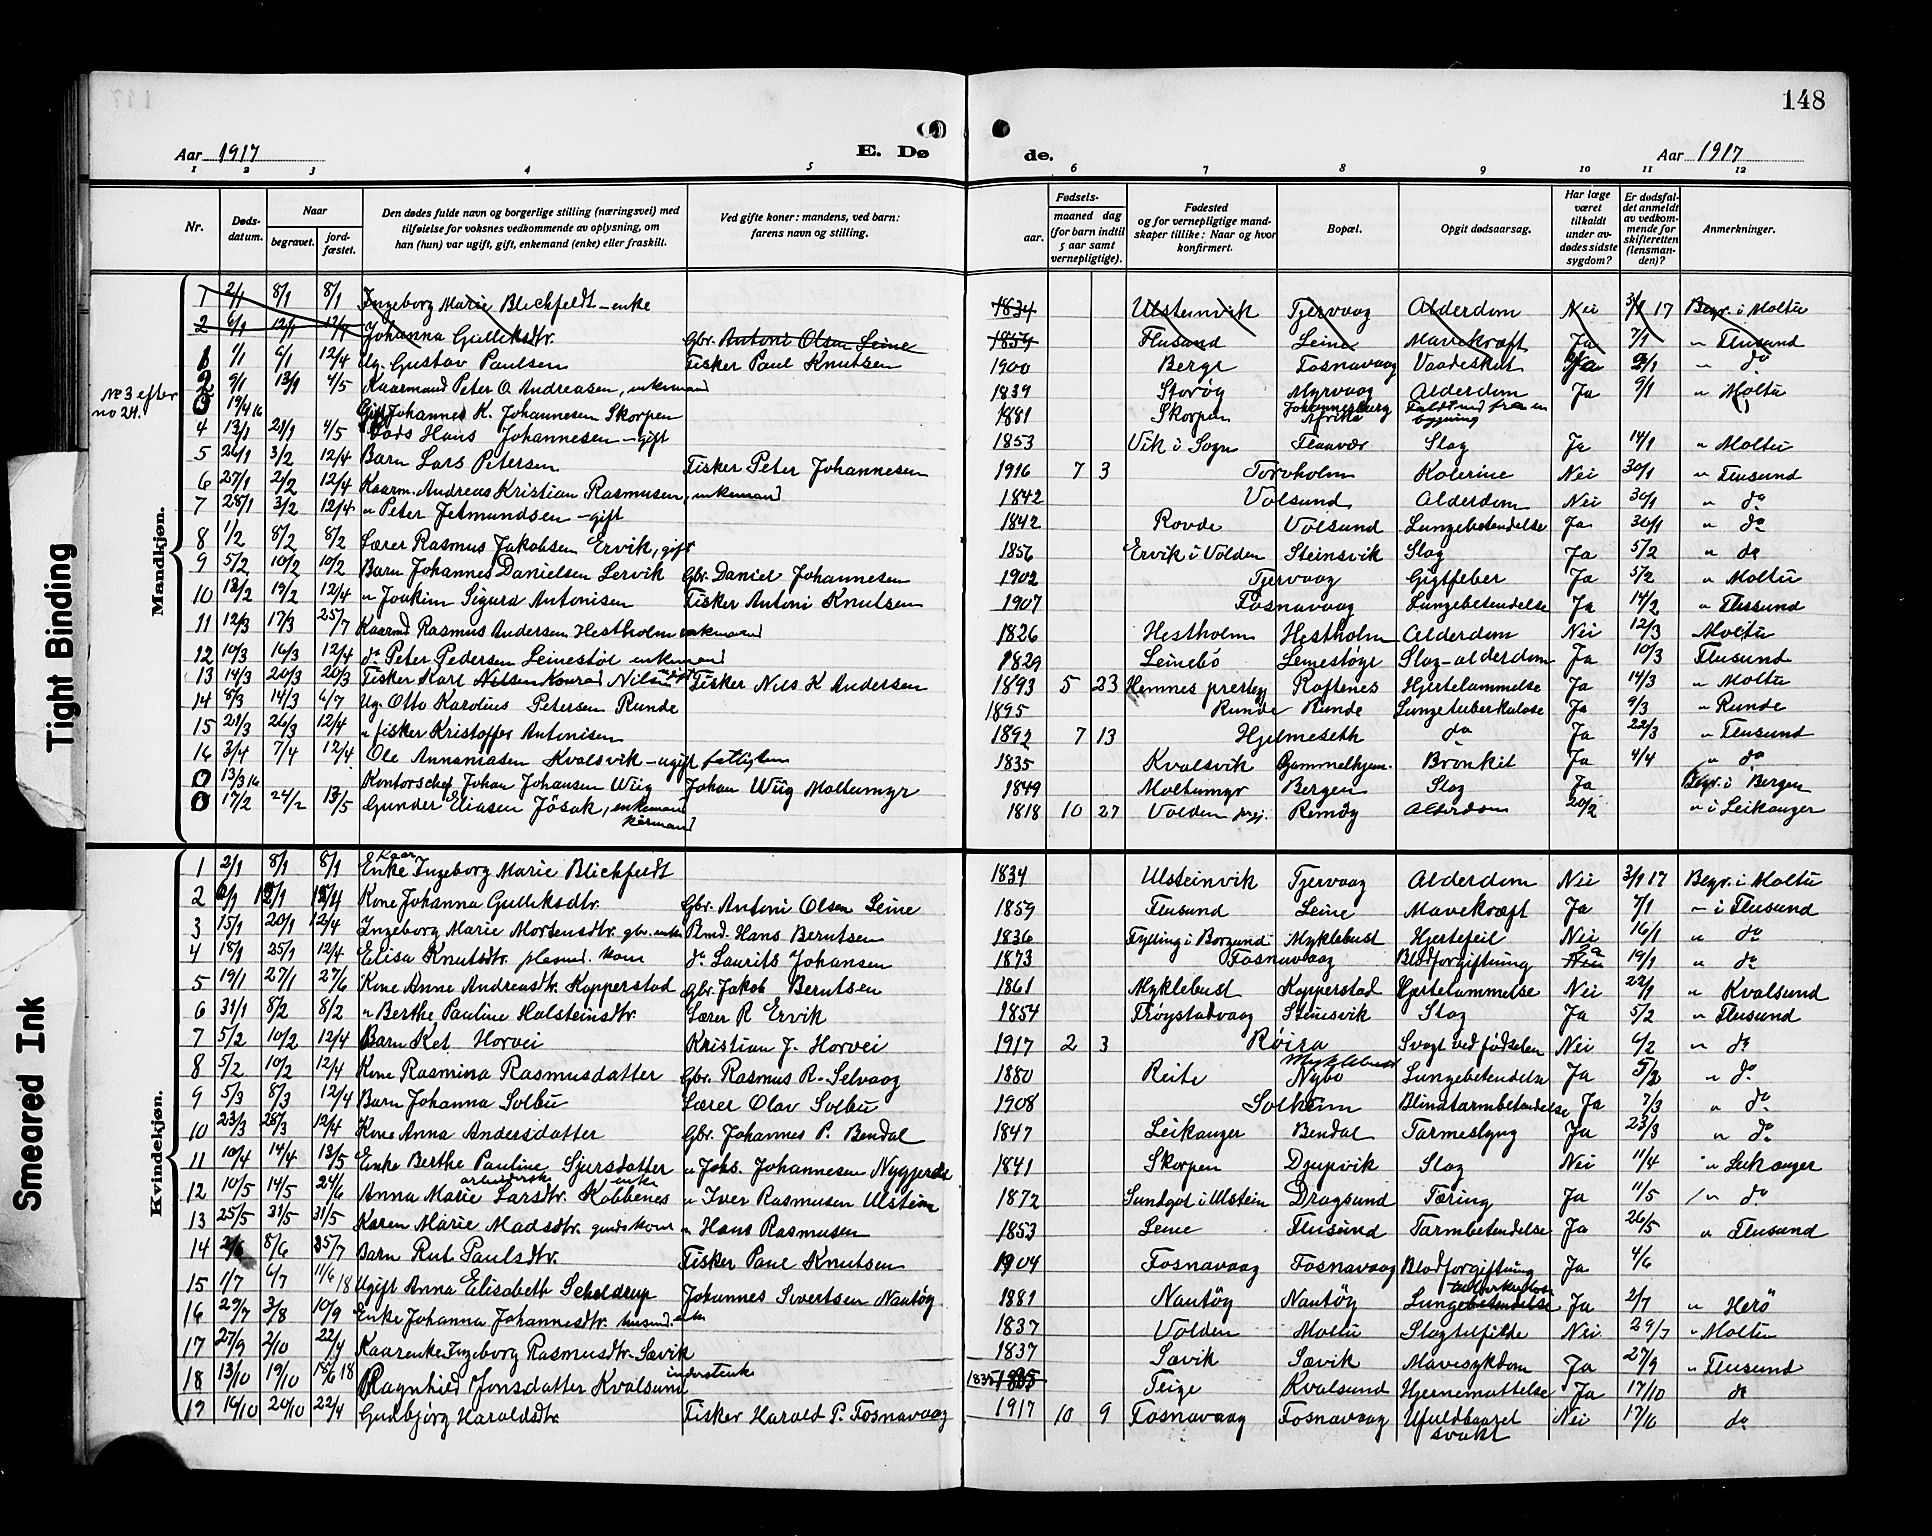 148
Aar 1917
E. Døde.
Aar 1917
1 2 3 4 5 6 7 8 9 10 11 12
Nr.
Døds-datum.
Naar
begravet.
jord-fæstet.
Den dødes fulde navn og borgerlige stilling (næringsvei) med tilføielse for voksnes vedkommende av oplysning, om han (hun) var ugift, gift, enkemand (enke) eller fraskilt.
Ved gifte koner: mandens, ved barn: farens navn og stilling.
Fødsels-
aar.
maaned dag
(for barn indtil 5 aar samt vernepligtige).
Fødested og for vernepligtige mandskaper tillike: Naar og hvor konfirmert.
Bopæl.
Opgit dødsaarsag.
Har læge været tilkaldt under avdødes sidste sygdom?
Er dødsfaldet anmeldt av vedkommende for skifteretten (lensmanden)?
Anmerkninger.
Mandkjøn.
1 2/1 8/1 8/1 Ingeborg Marie Blichfeldt - enke 1834 Ulsteinvik Tjervaag Alderdom Nei 3/1 17 Begr. i Moltu
2 6/1 12/1 12/4 Johanna Gulliksdtr. Gbr. Antoni Olsen Leine 1859 Flusund Leine Mavekræft Ja 7/1 " Flusund
1 1/1 6/1 12/4 Ug. Gustav Paulsen Fisker Paul Knutsen 1900 Berge Fosnavaag Vaadeskud Ja 2/1 " do
2 9/1 13/1 4/5 Kaarmand Peter O. Andreasen, enkemand 1839 Storøy Myrvaag Alderdom Ja 9/1 " Moltu
No 3 efter no 24.
0 19/4 16 Gift Johannes K. Johannesen Skorpen 1881 Skorpen Johannesburg Afrika Faldt ned fra en bygning
4 13/1 21/1 4/5 Lods Hans Johannesen - gift 1853 Vik i Sogn Flaavær Slag Ja 14/1 " Moltu
5 26/1 3/2 12/4 Barn Lars Petersen Fisker Peter Johannesen 1916 7 3 Torvholm Kolerine Nei 30/1 " Flusund
6 27/1 2/2 12/4 Kaarm. Andreas Kristian Rasmusen, enkemand 1842 Volsund Alderdom Nei 30/1 " do
7 28/1 3/2 12/4 " Peter Jetmundsen - gift 1842 Rovde Volsund Lungebetendelse Ja 30/1 " do
8 1/2 8/2 8/2 Lærer Rasmus Jakobsen Ervik, gift 1856 Ervik i Volden Steinsvik Slag Ja 5/2 " do
9 5/2 10/2 10/2 Barn Johannes Danielsen Lervik Gbr. Daniel Johannesen 1902 Tjervaag Gigtfeber Ja 5/2 " Moltu
10 13/2 19/2 12/4 " Joakim Sigurd Antonisen Fisker Antoni Knutsen 1907 Fosnavaag Lungebetendelse Ja 14/2 " Flusund
11 12/3 17/3 25/7 Kaarmd Rasmus Andersen Hestholm enkemand 1826 Hestholm Hestholm Alderdom Nei 12/3 Moltu
12 10/3 16/3 12/4 do Peter Pedersen Leinestøl enkemand 1829 Leinebø Leinestøyl Slag - alderdom Ja 10/3 Flusund
13 14/3 20/3 20/3 Fisker Karl Nilsen Konrad Nilsen ugift Fisker Nils K Andersen 1893 5 23 Hemnes prestegj Raftenes Hjertelammelse Ja 14/3 " Moltu
14 8/3 14/3 6/7 Ug. Otto Karolius Petersen Runde 1895 Runde Runde Lungetuberkulose Ja 9/3 " Runde
15 21/3 26/3 12/4 " fisker Kristoffer Antonisen 1892 7 13 Hjelmeseth do Ja 22/3 " Flusund
16 3/4 7/4 12/4 Ole Annaniasen Kvalsvik - ugift fattiglem 1835 Kvalsvik Gammelhjem. Bronkit Ja 4/4 " do
0 13/3 16 Kontorschef Johan Johansen Wiig Johan Wiig Moltumyr 1849 Moltumyr Bergen Slag Ja Begr. i Bergen
0 17/2 24/2 13/5 Gunder Eliasen Jøsok, enkemand kårmand 1818 10 27 Volden prgj. Remøy Alderdom 20/2 " i Leikanger
Kvindekjøn.
1 2/1 8/1 8/1 Kaar Enke Ingeborg Marie Blichfeldt 1834 Ulsteinvik Tjervaag Alderdom Nei 3/1 17 Begr. i Moltu
2 6/1 12/1 12/4 Kone Johanna Gulliksdtr. Gbr. Antoni Olsen Leine 1859 Flusund Leine Mavekræft Ja 7/1 " i Flusund
3 15/1 20/1 12/4 Ingeborg Marie Mortensdtr. gbr. enke Plmd. Hans Berntsen 1836 Fylling i Borgund Myklebust Hjertefeil Nei 16/1 " do
4 18/1 25/1 12/4 Elisa Knutsdtr. plasmd. kone do Laurits Johansen 1873 Fosnavaag Blodforgiftning Nei Ja 19/1 " do
5 19/1 27/1 27/6 Kone Anne Andreasdtr. Kopperstad Gbr. Jakob Berntsen 1861 Myklebust Kopperstad Hjertelammelse Nei 22/1 " Kvalsund
6 31/1 8/2 8/2 " Berthe Pauline Halsteinsdtr. Lærer R Ervik 1854 Frøystadvaag Steinsvik Slag Ja 5/2 " Flusund
7 5/2 10/2 12/4 Barn Ket Horvei Kristian J. Horvei 1917 2 3 Røira Svagt ved fødselen Nei 6/2 " do
8 5/2 10/2 12/4 Kone Rasmina Rasmusdatter Gbr. Rasmus R. Selvaag 1880 Reite Myklebust Nybø Lungebetendelse Ja 5/2 " do
9 5/3 8/3 12/4 Barn Johanna Solbu Lærer Olav Solbu 1908 Solheim Blindtarmbetendelse Ja 7/3 " do
10 23/3 28/3 12/4 Kone Anna Andersdatter Gbr. Johannes P. Bendal 1847 Leikanger Bendal Tarmeslyng Ja 23/3 " do
11 10/4 14/4 13/5 Enke Berthe Pauline Sjursdatter " Johs. Johannesen Nygjerde 1841 Skorpen Djupvik Slag Nei 11/4 " Leikanger
12 10/5 14/5 24/6 Anna Marie Larsdtr. Kobbenes arbeiderske enke " Iver Rasmusen Ulstein 1872 Sundgot i Ulstein Dragsund Tæring Ja 11/5 " do
13 25/5 31/5 31/5 Karen Marie Madsdtr. gaards kone " Hans Rasmusen 1853 Leine Flusund Tarmbetendelse Ja 26/5 " Flusund
14 2/6 8/6 25/7 Barn Rut Paulsdtr. Fisker Paul Knutsen 1904 Fosnavaag Fosnavaag Blodforgiftning Ja 4/6
15 1/7 6/7 11/6 18 Ugift Anna Elisabeth Scheldrup Johannes Sivertsen Nautøy 1881 Nautøy Nautøy Lungebetendelse tuberkulose Ja 2/7 " Herø
16 29/7 3/8 10/9 Enke Johanna Johannesdtr. husmd. enke 1837 Volden Moltu Slagtilfelde Nei 29/7 " Moltu
17 27/9 2/10 22/4 Kaarenke Ingeborg Rasmusdtr. Sævik 1837 Sævik Sævik Mavesykdom Ja 27/9 " Flusund
18 13/10 19/10 18/6 18 Ragnhild Jonsdatter Kvalsund inderstenke 1835 Teige Kvalsund Hjernemattelse Ja 17/10 do
19 16/10 20/10 22/4 Gudbjørg Haraldsdtr. Fisker Harald P. Fosnavaag 1917 10 9 Fosnavaag Fosnavaag Ufuldbaaret svakt Nei 17/10 do
Tight Binding
Smeared Ink